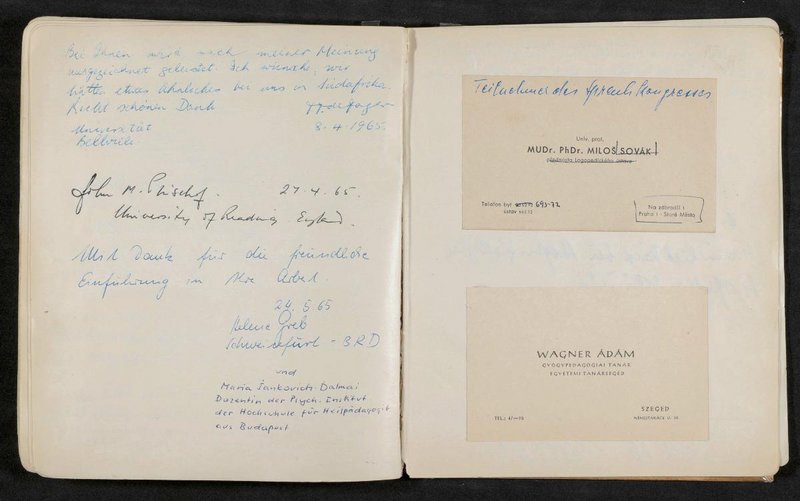 Bei Ihnen wird nach meiner Meinung
ausgezeichnet geleistet. Ich wünschte, wir
hätten etwas Ähnliches bei uns in Südafrika.
Recht schönen Dank
Universität 8-4-1965.
Bellville.
John M. 27.4.65.
University of Reading. England.
Mit Dank für die freundliche
Einführung in Ihre Arbeit.
24.5.65
Helene Greb
Schweinfurt - BRD
und
Maria Sankovich-Dalmai
Dozentin der Psych. Institut
der Hochschule für Heilpädagogik
aus Budapest
Teilnehmer des Kongresses
Univ. prof.
MUDr. PhDr. MILOŠ SOVÁK
přednosta Logopedického ústavu
Telefon byt 693-72
ústav
Na zábradlí 1
Praha 1 - Staré Město
WAGNER ÁDÁM
GYÓGYPEDAGÓGIAI TANÁR
EGYETEMI TANÁRSEGÉD
SZEGED
TEL.: 47—